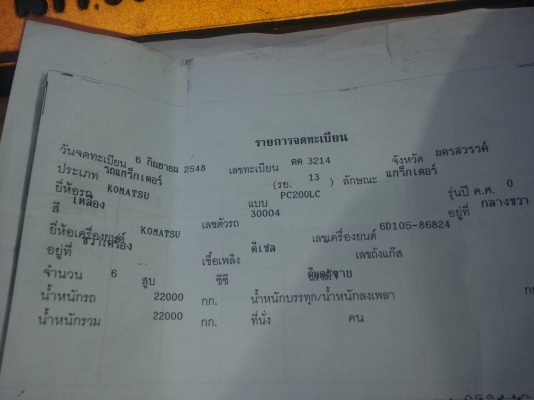 รายการจดทะเบียน
วันจดทะเบียน 6 กันยายน 2548 เลขทะเบียน ตค 3214 จังหวัด นครสวรรค์
ประเภท รถแทร็กเตอร์ (รย. 13 ) ลักษณะ แทร็กเตอร์
ยี่ห้อรถ KOMATSU แบบ PC200LC รุ่นปี ค.ศ. 0
สี เหลือง เลขตัวรถ 30004 อยู่ที่ กลางขวา
ยี่ห้อเครื่องยนต์ KOMATSU เลขเครื่องยนต์ 6D105-86824
อยู่ที่ ขวาเครื่อง เชื้อเพลิง ดีเซล เลขถังแก๊ส
จำนวน 6 สูบ ซีซี
น้ำหนักรถ 22000 กก. น้ำหนักบรรทุก/น้ำหนักลงเพลา
น้ำหนักรวม 22000 กก. ที่นั่ง คน